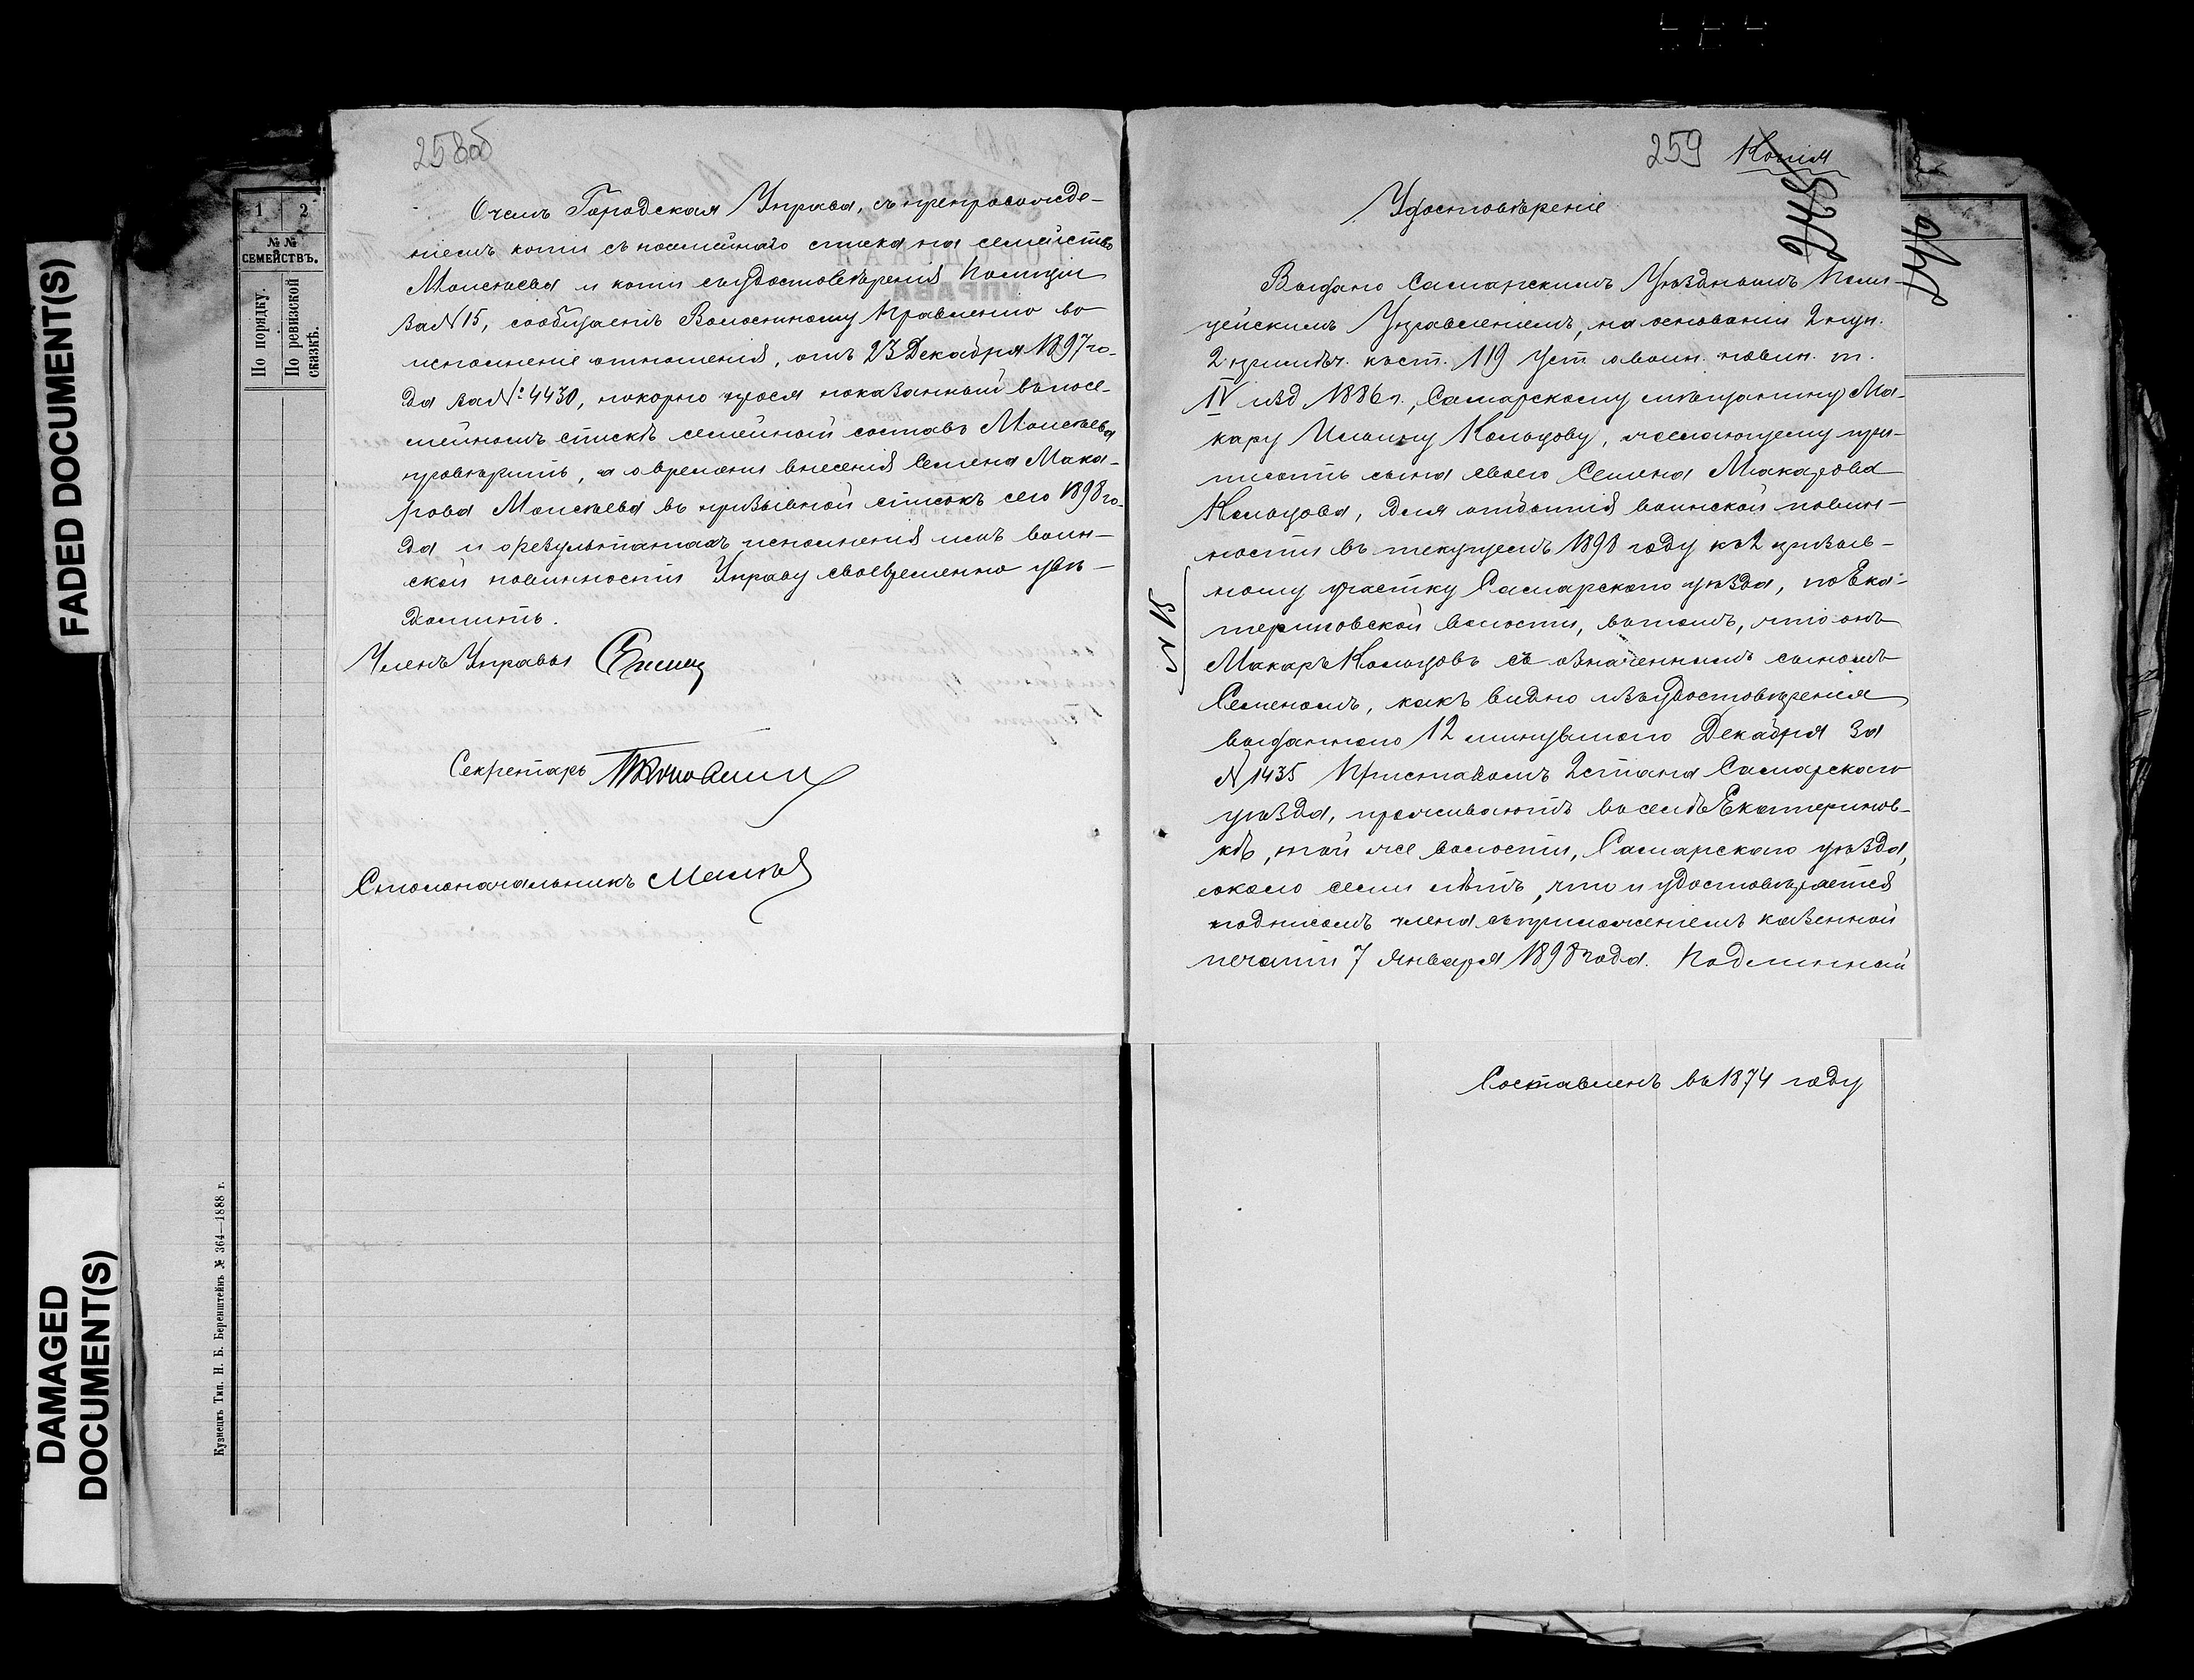 FADED DOCUMENT(S)
DAMAGED
DOCUMENT(S)
1 2
№ № СЕМЕЙСТВЪ.
По порядку.
По ревизской сказкѣ.
Кузнецкъ Тип. Н. Б. Беренштейнъ № 364—1888 г.
258об
О чемъ Городская Управа, съ препровожде-
ніемъ копіи съ посемейнаго списка на семейство
Моисеева и копіи съ удостовѣренія Полиціи
за № 15, сообщаетъ Волостному Правленію во
исполненіе отношенія, отъ 23 Декабря 1897 го-
да за № 4430, покорно прося показанный въ посе-
мейномъ спискѣ семейный составъ Моисеева
провѣрить, а о времени внесенія Семена Мака-
рова Моисеева въ призывной списокъ сего 1898 го-
да и о результатахъ исполненія имъ воин-
ской повинности Управу своевременно увѣ-
домить.
Членъ Управы
Секретарь
Столоначальникъ
259 Копія
245
247
Удостовѣреніе
Выдано Самарскимъ Уѣзднымъ Поли-
цейскимъ Управленіемъ, на основаніи 2 пун.
2 примѣч. къ ст. 119 Уст о воин. повин. т.
IV изд 1886 г., Самарскому мѣщанину Ма-
кару Ильину Кольцову, желающему при-
писать сына своего Семена Макарова
Кольцова, для отбытія воинской повин-
ности въ текущемъ 1898 году къ 2 призыв-
ному участку Самарскаго уѣзда, по Ека-
териновской волости, въ томъ, что онъ
Макаръ Кольцовъ съ означеннымъ сыномъ
Семеномъ, какъ видно изъ удостовѣренія
выданнаго 12 минувшаго Декабря за
№ 1435 Приставомъ 2 стана Самарскаго
уѣзда, проживаютъ въ селѣ Екатеринов-
кѣ, той же волости, Самарскаго уѣзда,
около семи лѣтъ, что и удостовѣряется
подписомъ члена съ приложеніемъ казенной
печати 7 Января 1898 года. Подлинный
N 15
Составленъ въ 1874 году